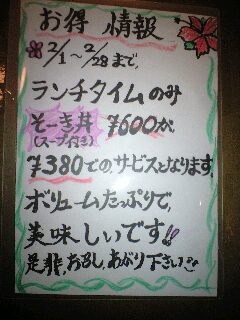 お得 情報
2/1～2/28まで、
ランチタイムのみ
そーき丼 ¥600が、
(スープ付き)
¥380でのサービスとなります。
ボリュームたっぷりで、
美味しいです!!
是非、お召し、あがり下さい